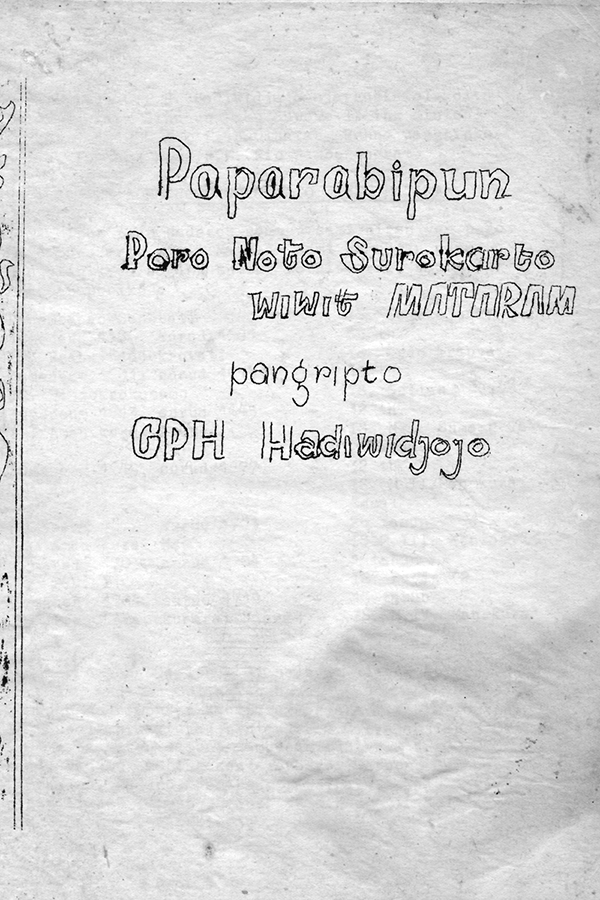 Paparabipun
Poro Noto Surokarto
WIWIT MATARAM
pangripto
GPH Hadiwidjojo